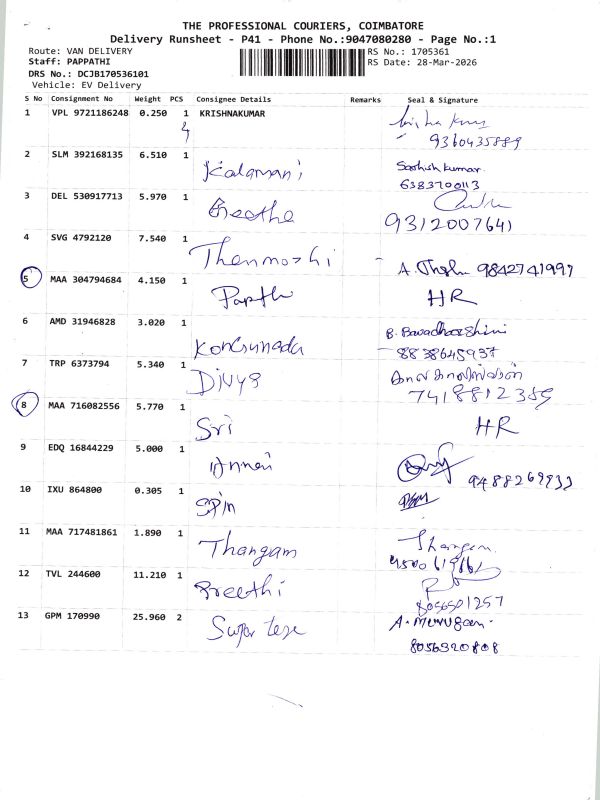 THE PROFESSIONAL COURIERS, COIMBATORE
Delivery Runsheet - P41 - Phone No.:9047080280 - Page No.:1
Route: VAN DELIVERY
RS No.: 1705361
Staff: PAPPATHI
RS Date: 28-Mar-2026
DRS No.: DCJB170536101
Vehicle: EV Delivery
S No Consignment No Weight PCS Consignee Details Remarks Seal & Signature
1 VPL 9721186248 0.250 1 KRISHNAKUMAR
9360435889
2 SLM 392168135 6.510 1 Kalamani Sathish kumar
6383700113
3 DEL 530917713 5.970 1 Geetha
9312007641
4 SVG 4792120 7.540 1 Thenmozhi A. 9842741997
5 MAA 304794684 4.150 1 Parthi HR
6 AMD 31946828 3.020 1 B. Bavadharshini
8838645937
7 TRP 6373794 5.340 1 Divya
7418812359
8 MAA 716082556 5.770 1 Sri HR
9 EDQ 16844229 5.000 1 9488269933
10 IXU 864800 0.305 1 Spin
11 MAA 717481861 1.890 1 Thangam Thangam
12 TVL 244600 11.210 1 Preethi
8056501257
13 GPM 170990 25.960 2 A. Murugan.
8056320808